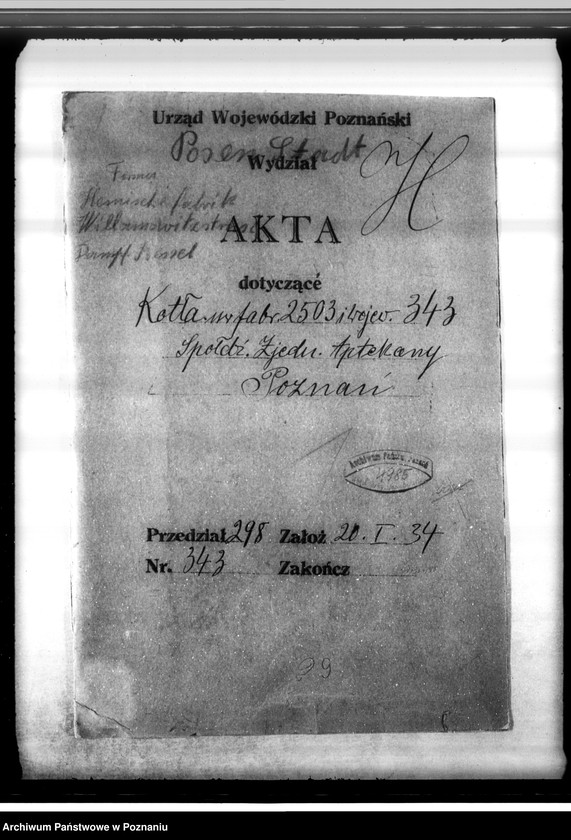 Urząd Wojewódzki Poznański
Posen Stadt
Wydział
H
Hemische fabrik
AKTA
Dampf Kessel
dotyczące
Kotła nr fabr. 2503 i wojew. 343
Spółdz. Zjedn. Aptekarzy
Poznań
Archiwum Państw. Poznań
1985
Przedział 298 Założ 20. I. 34
Nr. 343 Zakończ
29
Archiwum Państwowe w Poznaniu